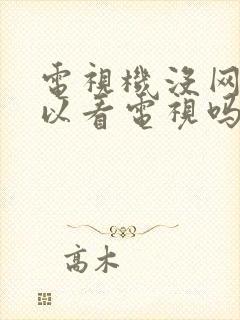 電視機没网
以看電視吗
高木